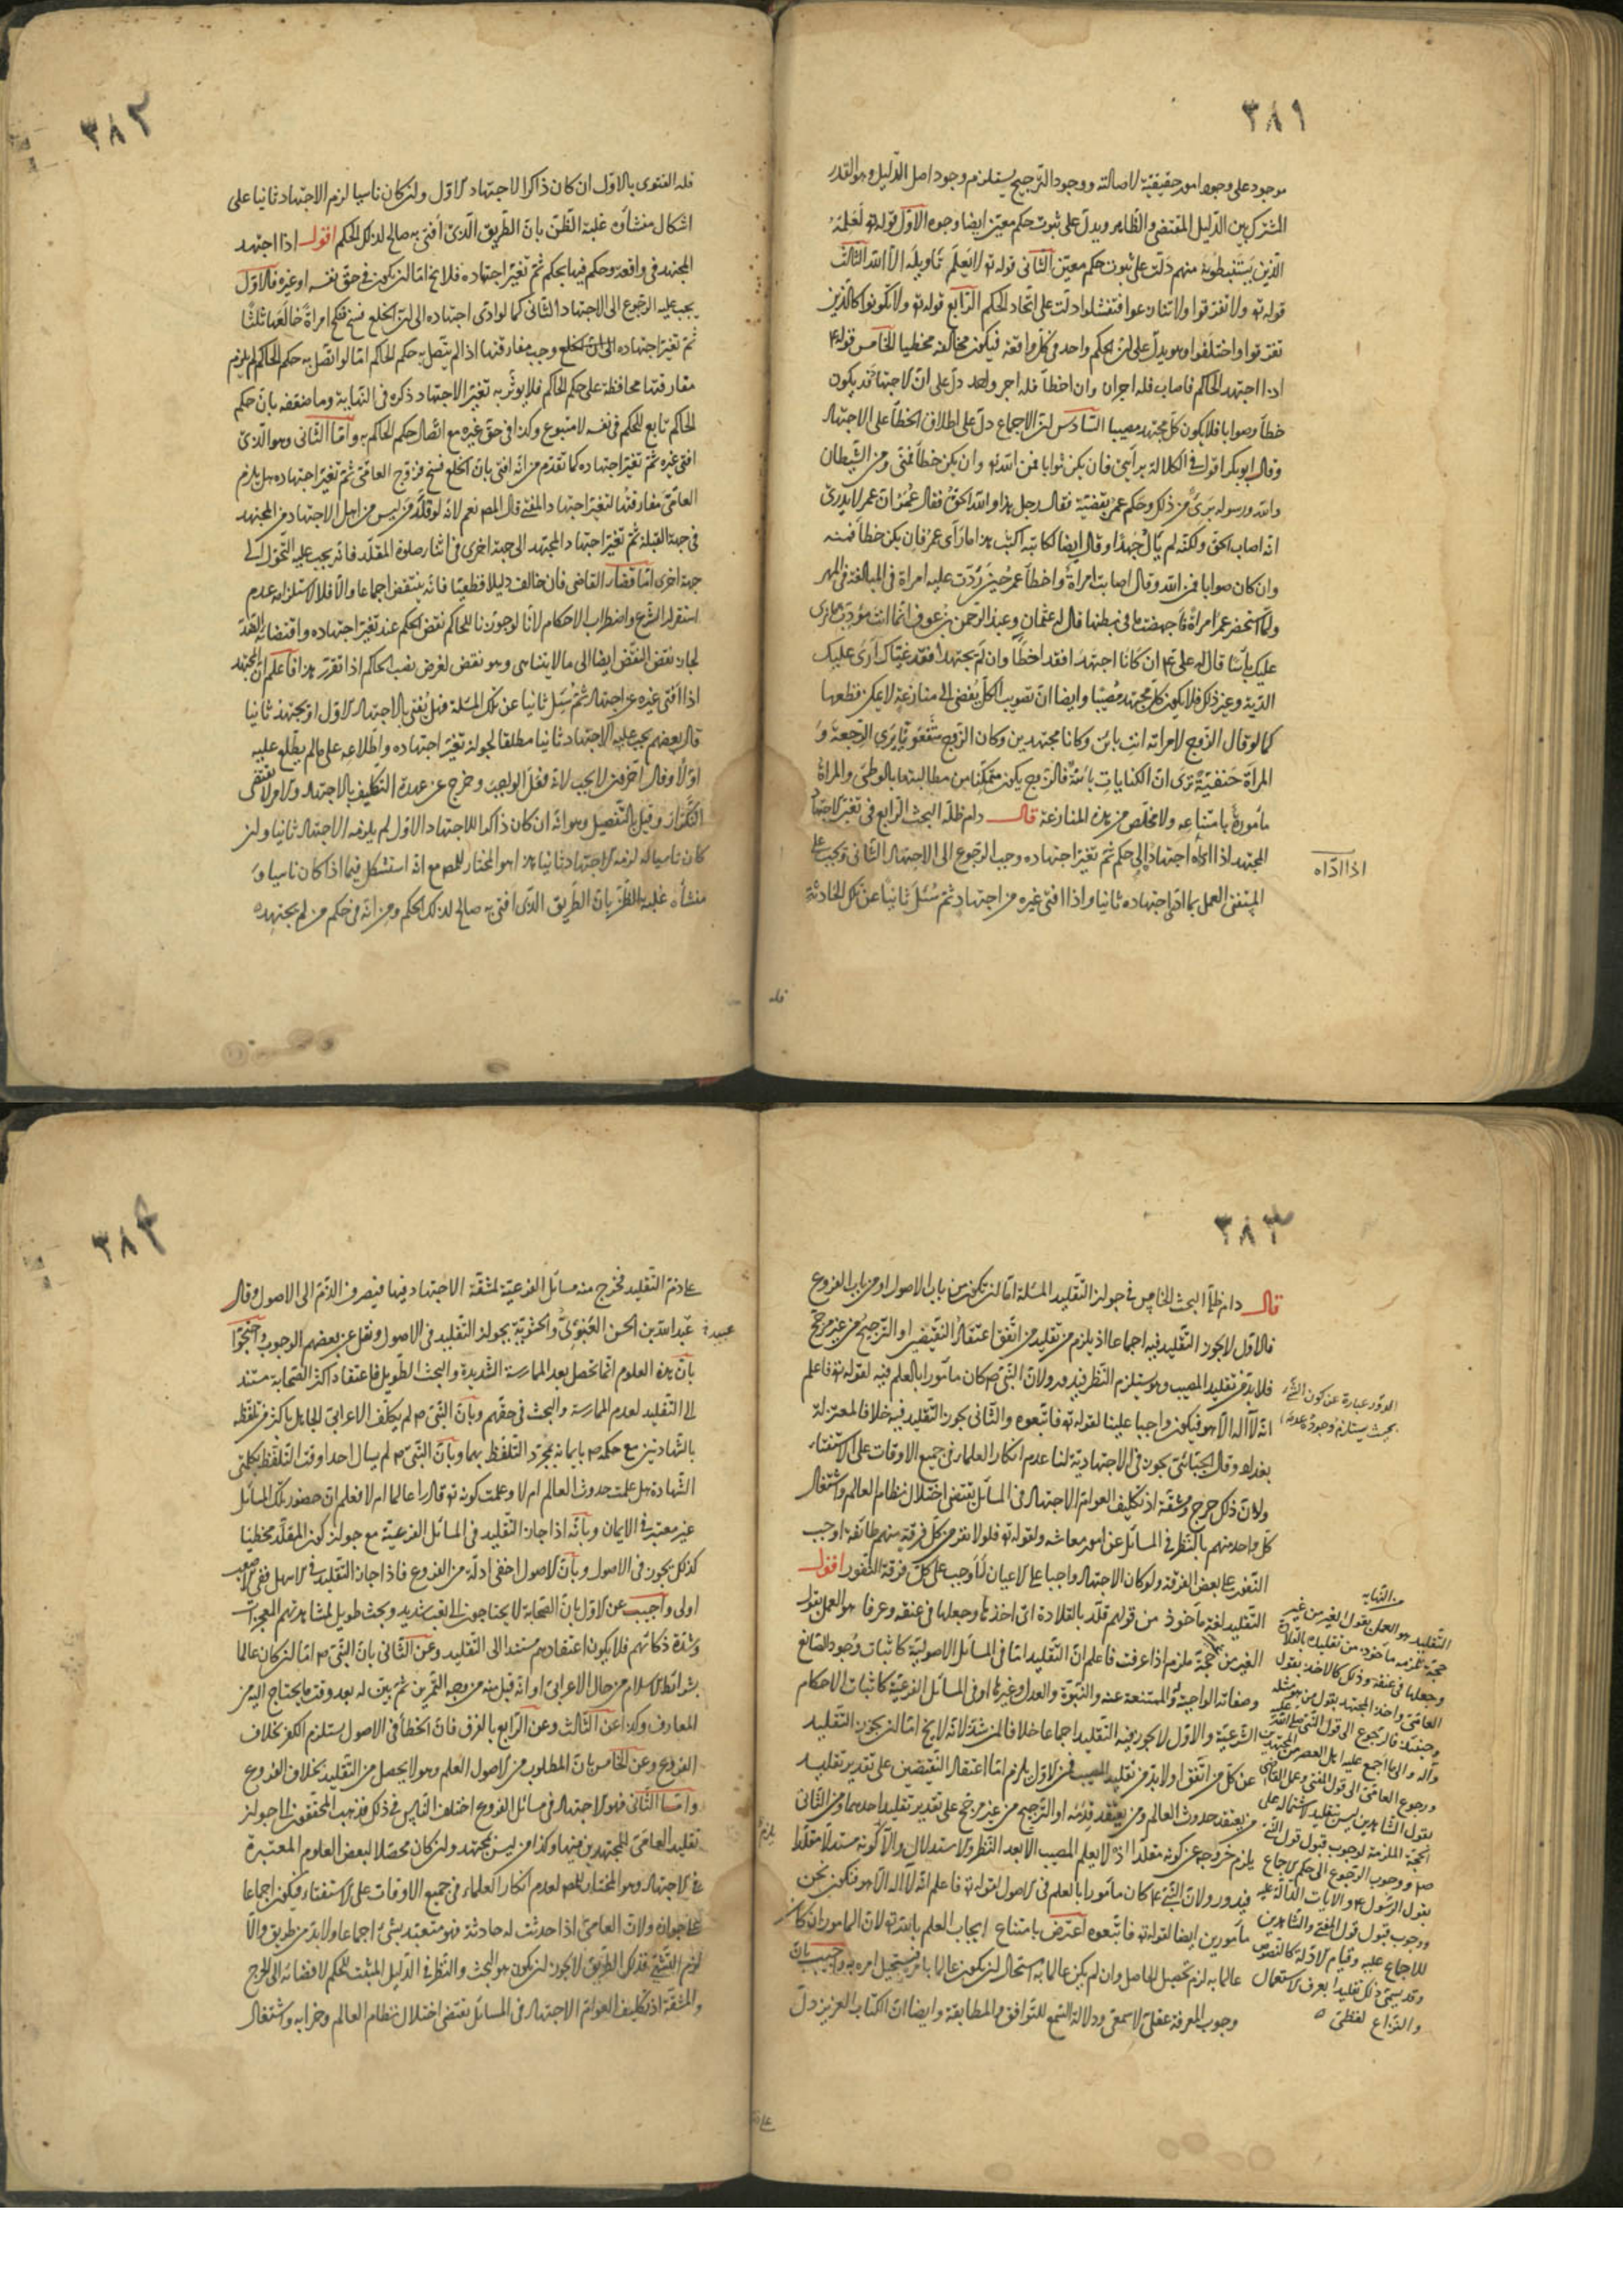 ٣٨١
موجود على وجوه امور حقيقية لاصالته ووجود الترجيح يستلزم وجود اصل الدليل وهو القدر
المشترك بين الدليل المقتضى والظاهر ويدل على ثبوت حكم معين ايضا وجوه الاول قوله تع لعلمه
الذين يستنبطونه منهم دلت على ثبوت حكم معين الثانى قوله تع لا يعلم تأويله الا الله الثالث
قوله تع ولا تفرقوا ولا تنازعوا فتفشلوا دلت على اتحاد الحكم الرابع قوله تع ولا تكونوا كالذين
تفرقوا واختلفوا وهو يدل على ان الحكم واحد فى كل واقعة فيكون مخالفه مخطيا الخامس قوله ع
اذا اجتهد الحاكم فاصاب فله اجران وان اخطأ فله اجر واحد دل على ان الاجتهاد قد يكون
خطأ وصوابا فلا يكون كل مجتهد مصيبا السادس ان الاجماع دل على اطلاق الخطأ على الاجتهاد
وقال ابو بكر اقول فى الكلالة برأيى فان يكن صوابا فمن الله تع وان يكن خطأ فمنى ومن الشيطان
والله ورسوله برئ من ذلك وحكم عمر بقضية فقال رجل هذا والله الحق فقال عمر ان عمر لا يدرى
انه اصاب الحق ولكنه لم يأل جهدا وقال ايضا لكاتبه اكتب هذا ما رأى عمر فان يكن خطأ فمنه
وان كان صوابا فمن الله وقال اصابت امرأة واخطأ عمر حين ردت عليه امراة فى المبالغة فى المهر
ولما استحضر عمر امرأة فاجهضت ما فى بطنها قال له عثمان وعبد الرحمن بن عوف انما انت مؤدب ما نرى
عليك بأسا قال له على ع ان كانا اجتهدا فقد اخطأا وان لم يجتهدا فقد غشاك ارى عليك
الدية وغير ذلك فلا يكون كل مجتهد مصيبا وايضا ان تصويب الكل يفضى الى منازعة لا يمكن قطعها
كما لو قال الزوج لامراته انت بائن وكانا مجتهدين وكان الزوج شفعويا يرى الرجعة و
المرأة حنفية ترى ان الكنايات بائنة فالزوج يكون متمكنا من مطالبتها بالوطى والمرأة
مأمورة بامتناعه ولا مخلص من هذه المنازعة قال دام ظله البحث الرابع فى تغير الاجتهاد
المجتهد اذا اداه اجتهاده الى حكم ثم تغير اجتهاده وجب الرجوع الى الاجتهاد الثانى ويجب على
المستفتى العمل بما ادى اجتهاده ثانيا واذا افتى غيره من اجتهاد ثم سئل ثانيا عن تلك الحادثة
اذا اداه
فله
٣٨٢
فله الفتوى بالاول ان كان ذاكرا لاجتهاد الاول وان كان ناسيا لزم الاجتهاد ثانيا على
اشكال منشأه غلبة الظن بان الطريق الذى افتى به صالح لذلك الحكم اقول اذا اجتهد
المجتهد فى واقعة وحكم فيها بحكم ثم تغير اجتهاده فلا يخ اما ان يكون فى حق نفسه او غيره فالاول
يجب عليه الرجوع الى الاجتهاد الثانى كما لو ادى اجتهاده الى ان الخلع فسخ فنكح امراة خالعها ثلثا
ثم تغير اجتهاده وجب مفارقتها اذا لم يتصل به حكم الحاكم اما لو اتصل به حكم الحاكم لم يلزم
مفارقتها محافظة على حكم الحاكم فلا يؤثر به تغير الاجتهاد ذكره فى النهاية وما ضعفه بان حكم
الحاكم تابع للحكم فى نفسه لا متبوع وكذا فى حق غيره مع اتصال حكم الحاكم به واما الثانى وهو الذى
افتى غيره ثم تغير اجتهاده كما تقدم من انه افتى بان الخلع فسخ فزوج العامى ثم تغير اجتهاده هل يلزم
العامى مفارقتها لتغير اجتهاد المفتى قال المص نعم لانه لو قلد من ليس من اهل الاجتهاد من المجتهد
فى جهة القبلة ثم تغير اجتهاد المجتهد الى جهة اخرى فى اثناء صلوة المقلد فانه يجب عليه التحول الى
جهة اخرى اما قضاء القاضى فان خالف دليلا قطعيا فانه ينتقض اجماعا والا فلا لاستلزامه عدم
استقرار الشرع واضطراب الاحكام لانا لو جوزنا للحاكم نقض الحكم عند تغير اجتهاده
لجاز نقض النقض ايضا الى ما لا يتناهى وهو نقض لغرض نصب الحاكم اذا تقرر هذا فاعلم ان المجتهد
اذا افتى غيره عن اجتهاد ثم سئل ثانيا عن تلك المسئلة فهل يفتى بالاجتهاد الاول او يجتهد ثانيا
قال بعضهم يجب عليه الاجتهاد ثانيا مطلقا لجواز تغير اجتهاده واطلاعه على ما لم يطلع عليه
اولا وقال اخرون لا يجب لانه فعل الواجب وخرج عن عهدة التكليف بالاجتهاد والامر لا يقتضى
التكرار وقيل بالتفصيل وهو انه ان كان ذاكرا للاجتهاد الاول لم يلزمه الاجتهاد ثانيا وان
كان ناسيا له لزمه الاجتهاد ثانيا هذا هو المختار للمص مع انه استشكل فيما اذا كان ناسيا و
منشأه غلبة الظن بان الطريق الذى افتى به صالح لذلك الحكم ومن انه فى حكم من لم يجتهد
٣٨٣
قال دام ظله البحث الخامس فى جواز التقليد المسئلة اما ان تكون من باب الاصول او من باب الفروع
فالاول لا يجوز التقليد فيه اجماعا اذ يلزم من تقليد من اتفق اعتقاد النقيضين او الترجيح من غير مرجح
فلا بد من تقليد المصيب وهو يستلزم النظر فيدور ولان النبى ص كان مأمورا بالعلم فيه لقوله تع فاعلم
انه لا اله الا هو فيكون واجبا علينا لقوله تع فاتبعوه والثانى يجوز التقليد فيه خلافا لمعتزلة
بغداد وقال الجبائى يجوز فى الاجتهادية لنا عدم انكار العلماء فى جميع الاوقات على الاستفتاء
ولان ذلك حرج ومشقة اذ تكليف العوام الاجتهاد فى المسائل يقتضى اختلال نظام العالم واشتغال
كل واحد منهم بالنظر فى المسائل عن امور معاشه ولقوله تع فلولا نفر من كل فرقة منهم طائفة اوجب
النفور على بعض الفرقة ولو كان الاجتهاد واجبا على الاعيان لأوجب على كل فرقة النفور اقول
التقليد لغة مأخوذ من قولهم قلد بالقلادة اى اخذها وجعلها فى عنقه وعرفا هو العمل بقول
الغير من حجة ملزم اذا عرفت فاعلم ان التقليد اما فى المسائل الاصولية كاثبات وجود الصانع
وصفاته الواجبة له والممتنعة عنه والنبوة والعدل وغيرها او فى المسائل الفرعية كاثبات الاحكام
الشرعية والاول لا يجوز فيه التقليد اجماعا خلافا لمن شذ لانه لا يخ اما ان يجوز التقليد
عن كل من اتفق او لا بد من تقليد المصيب فمن الاول يلزم اما اعتقاد النقيضين على تقدير تقليد
من يعتقد حدوث العالم ومن يعتقد قدمه او الترجيح من غير مرجح على تقدير تقليد احدهما ومن الثانى
يلزم خروجه عن كونه مقلدا اذ لا يعلم المصيب الا بعد النظر والاستدلال والا كونه مستدلا مقلدا
فيدور ولان النبى ع كان مأمورا بالعلم فى الاصول لقوله تع فاعلم انه لا اله الا هو فنكون نحن
مأمورين ايضا لقوله تع فاتبعوه اعترض بامتناع ايجاب العلم بالله تع لان المامور ان كان
عالما به لزم تحصيل الحاصل وان لم يكن عالما به استحال ان يكون عالما بامره فيستحيل امره به واجيب بان
وجوب المعرفة عقلى لا سمعى ودلالة السمع للتوافق والمطابقة وايضا ان الكتاب العزيز دل
الدور عبارة عن كون الشئ
بحيث يستلزم وجوده عدمه
من النهاية
التقليد هو العمل بقول الغير من غير
حجة ملزمه مأخوذ من تقليده بالقلادة
وجعلها فى عنقه وذلك كالاخذ بقول
العامى واخذ المجتهد بقول من هو مثله
وحينئذ فالرجوع الى قول النبى صلى الله عليه
وآله والى ما اجمع عليه اهل العصر من المجتهدين
ورجوع العامى الى قول المفتى وعمل القاضى
بقول الشاهدين ليس بتقليد لاشتماله على
الحجة الملزمة لوجوب قبول قول النبى
ص ووجوب الرجوع الى حكم الاجماع
بقول الرسول ع والايات الدالة عليه
ووجوب قبول قول المفتى والشاهدين
للاجماع عليه وقيام الادلة كالنصوص
وقد يسمى ذلك تقليدا بعرف الاستعمال
والنزاع لفظى
على ذم
٣٨٤
على ذم التقليد فخرج منه مسائل الفرعية لمشقة الاجتهاد فيها فيصرف الذم الى الاصول وقال
عبد الله بن الحسن العنبرى والحشوية بجواز التقليد فى الاصول ونقل عن بعضهم الوجوب واحتجوا
بان هذه العلوم انما تحصل بعد الممارسة الشديدة والبحث الطويل فاعتقاد اكثر الصحابة مستند
الى التقليد لعدم الممارسة والبحث فى حقهم وبان النبى ص لم يكلف الاعرابى الجاهل باكثر من تلفظه
بالشهادتين مع حكمه ص بايمانه بمجرد التلفظ بهما وبان النبى ص لم يسال احدا وقت التلفظ بكلمتى
الشهادة هل علمت حدوث العالم ام لا وعلمت كونه تع قادرا عالما ام لا فعلم ان حضور تلك المسائل
غير معتبر فى الايمان وبانه اذا جاز التقليد فى المسائل الفرعية مع جواز كون المقلد مخطيا
كذلك يجوز فى الاصول وبان الاصول اخفى ادلة من الفروع فاذا جاز التقليد فى الاسهل ففى الاصعب
اولى واجيب عن الاول بان الصحابة لا يحتاجون الى تعب شديد وبحث طويل لمشاهدتهم المعجزات
وشدة ذكائهم فلا يكون اعتقادهم مستندا الى التقليد وعن الثانى بان النبى ص اما ان كان عالما
بشرائط الاسلام من حال الاعرابى او انه قبل منه من وجه التمرين ثم بين له بعد وقت ما يحتاج اليه من
المعارف وكذا عن الثالث وعن الرابع بالفرق فان الخطأ فى الاصول يستلزم الكفر بخلاف
الفروع وعن الخامس بان المطلوب من الاصول العلم وهو لا يحصل من التقليد بخلاف الفروع
واما الثانى فهو الاجتهاد فى مسائل الفروع اختلف الناس فى ذلك فذهب المحققون الى جواز
تقليد العامى للمجتهدين فيها وكذا من ليس بمجتهد وان كان محصلا لبعض العلوم المعتبرة
فى الاجتهاد وهو المختار للمص لعدم انكار العلماء فى جميع الاوقات على الاستفتاء فكون اجماعا
على جوازه ولان العامى اذا حدثت له حادثة فهو متعبد بشئ اجماعا ولا بد من طريق والا
فذلك الطريق لا يجوز ان يكون هو البحث والنظر فى الدليل المثبت للحكم لافضائه الى الحرج
والمشقة اذ تكليف العوام الاجتهاد فى المسائل يقتضى اختلال نظام العالم وخرابه واشتغال
عبيد
يلزم